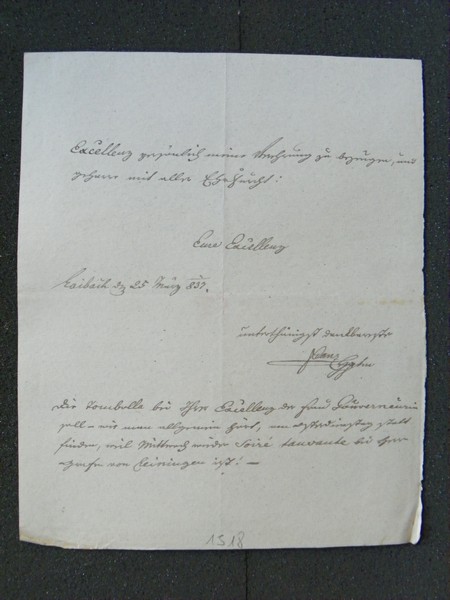 Excellenz persönlich meine Verehrung zu bezeugen, und
geharre mit aller Ehrfurcht:
Eure Excellenz
Laibach den 25 März 837.
unterthänigst dankbarste
Die Tombelle bei Ihre Excellenz der Frau Gouverneurin
soll – wie man allgemein hört, am statt
finden, weil Mittwoch wieder Soiré dansante bei Herr
Grafe von Leiningen ist! –
1518